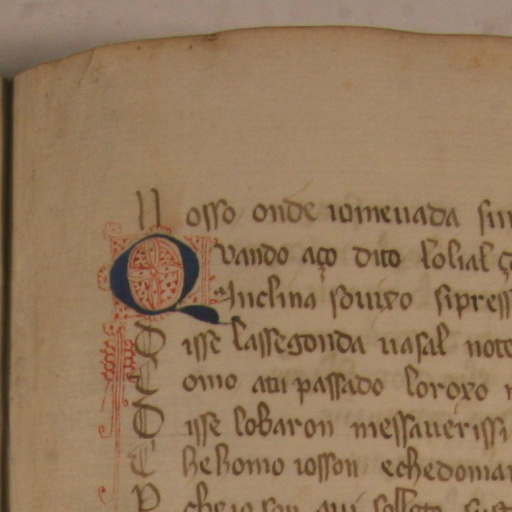 N osso onde io me uada sin
Q uando aço dito lolial
A inclina so uixo si press
D isse lassegonda uasal note
C omo atu passado loroxo
D isse lobaron messauerissi
C he homo io sson echedoman
P che io son qui